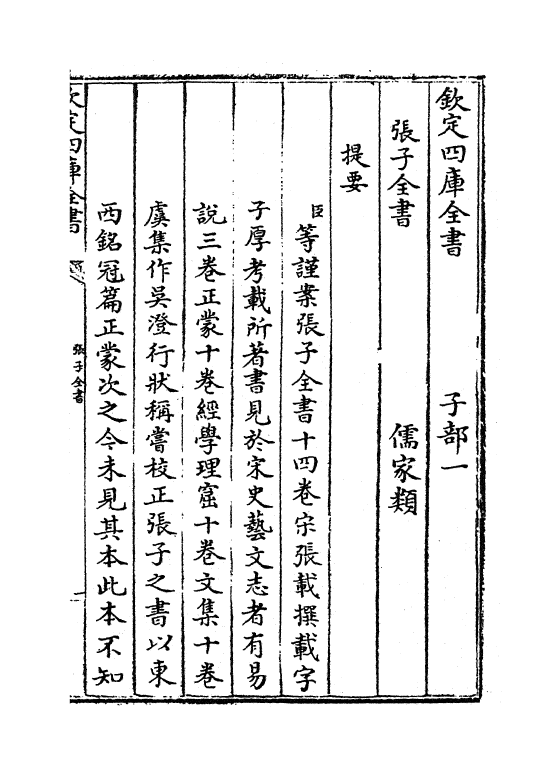 欽定四庫全書　子部一
張子全書　儒家類
提要
臣等謹案張子全書十四卷宋張載撰載字
子厚考載所著書見於宋史藝文志者有易
說三卷正蒙十卷經學理窟十卷文集十卷
虞集作吳澄行狀稱嘗校正張子之書以東
西銘冠篇正蒙次之今未見其本此本不知
欽定四庫全書
張子全書